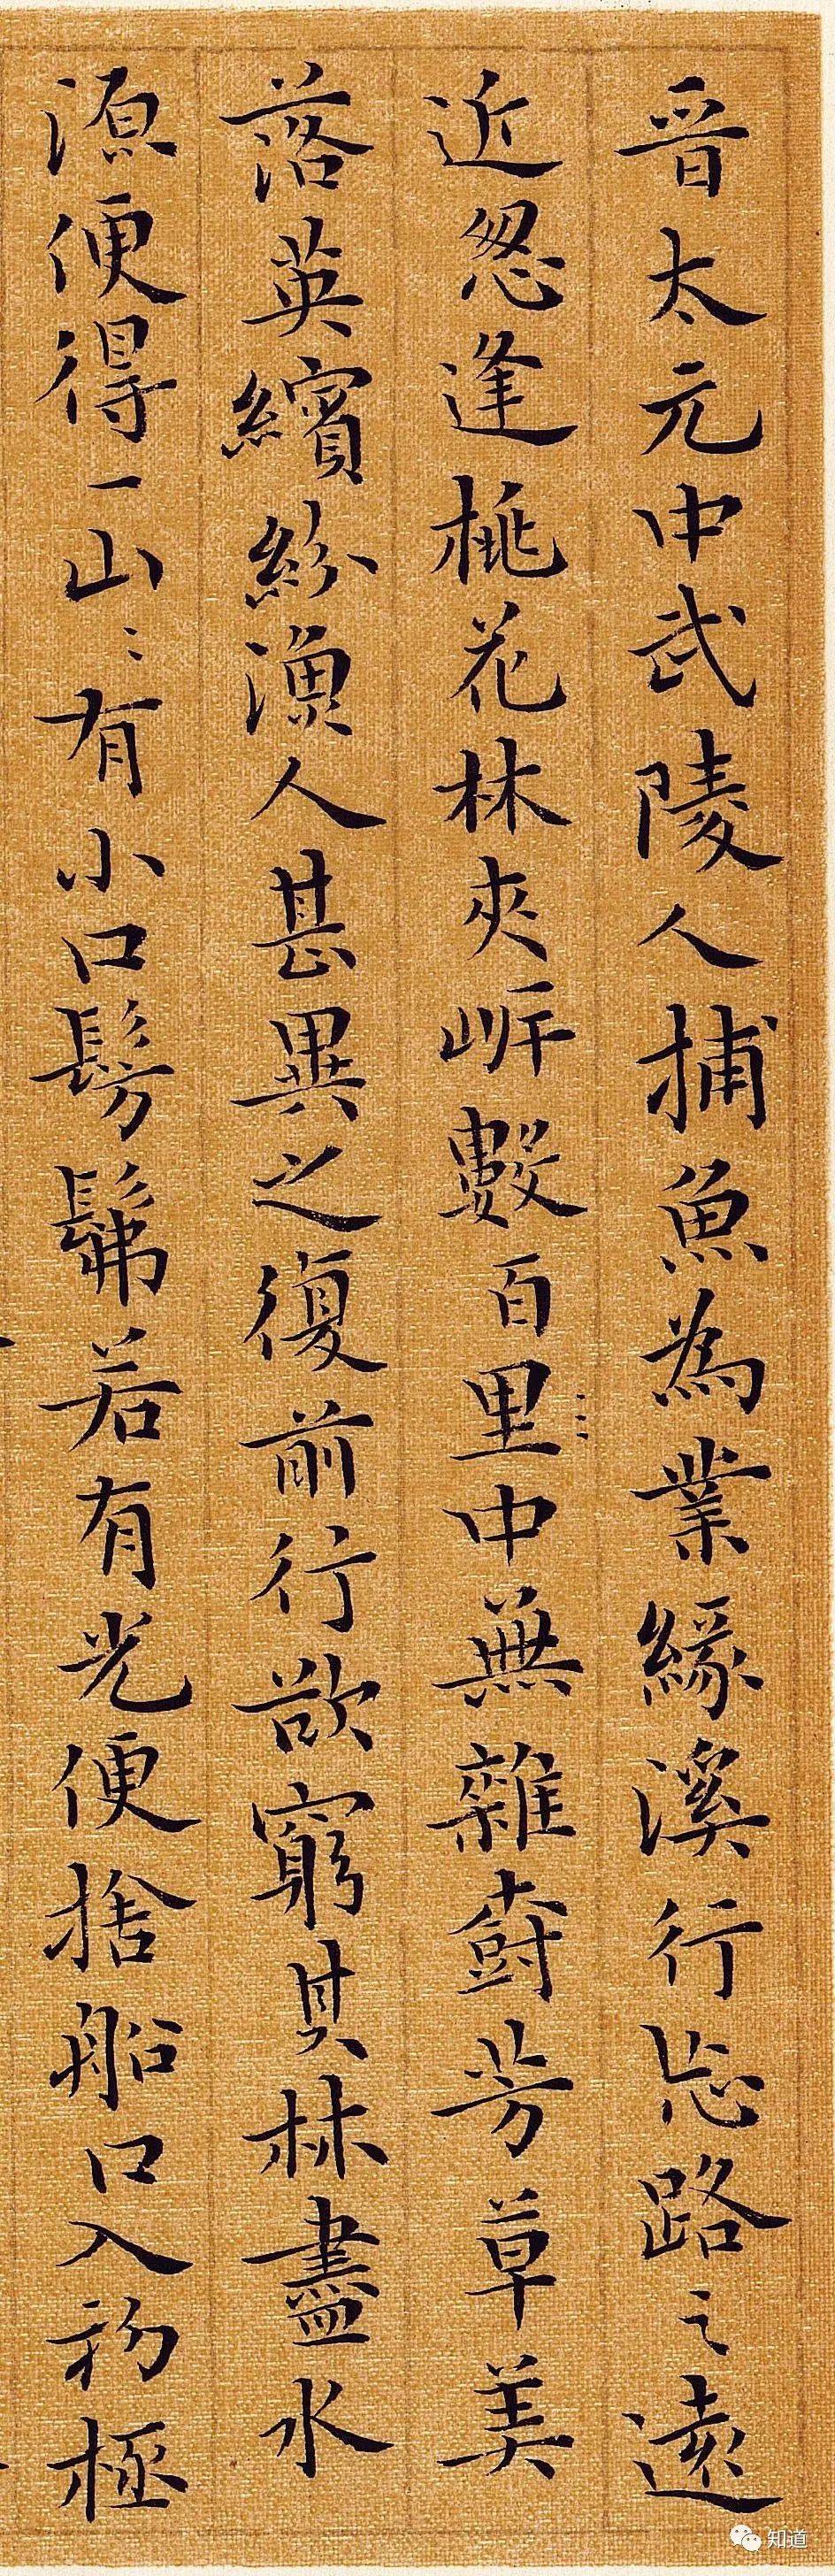 晉太元中武陵人捕魚為業緣溪行忘路之遠
近忽逢桃花林夾岍數百里中無雜樹芳草美
落英繽紛漁人甚異之復前行欲窮其林林盡水
源便得一山〻有小口髣髴若有光便捨船口入初極
知道